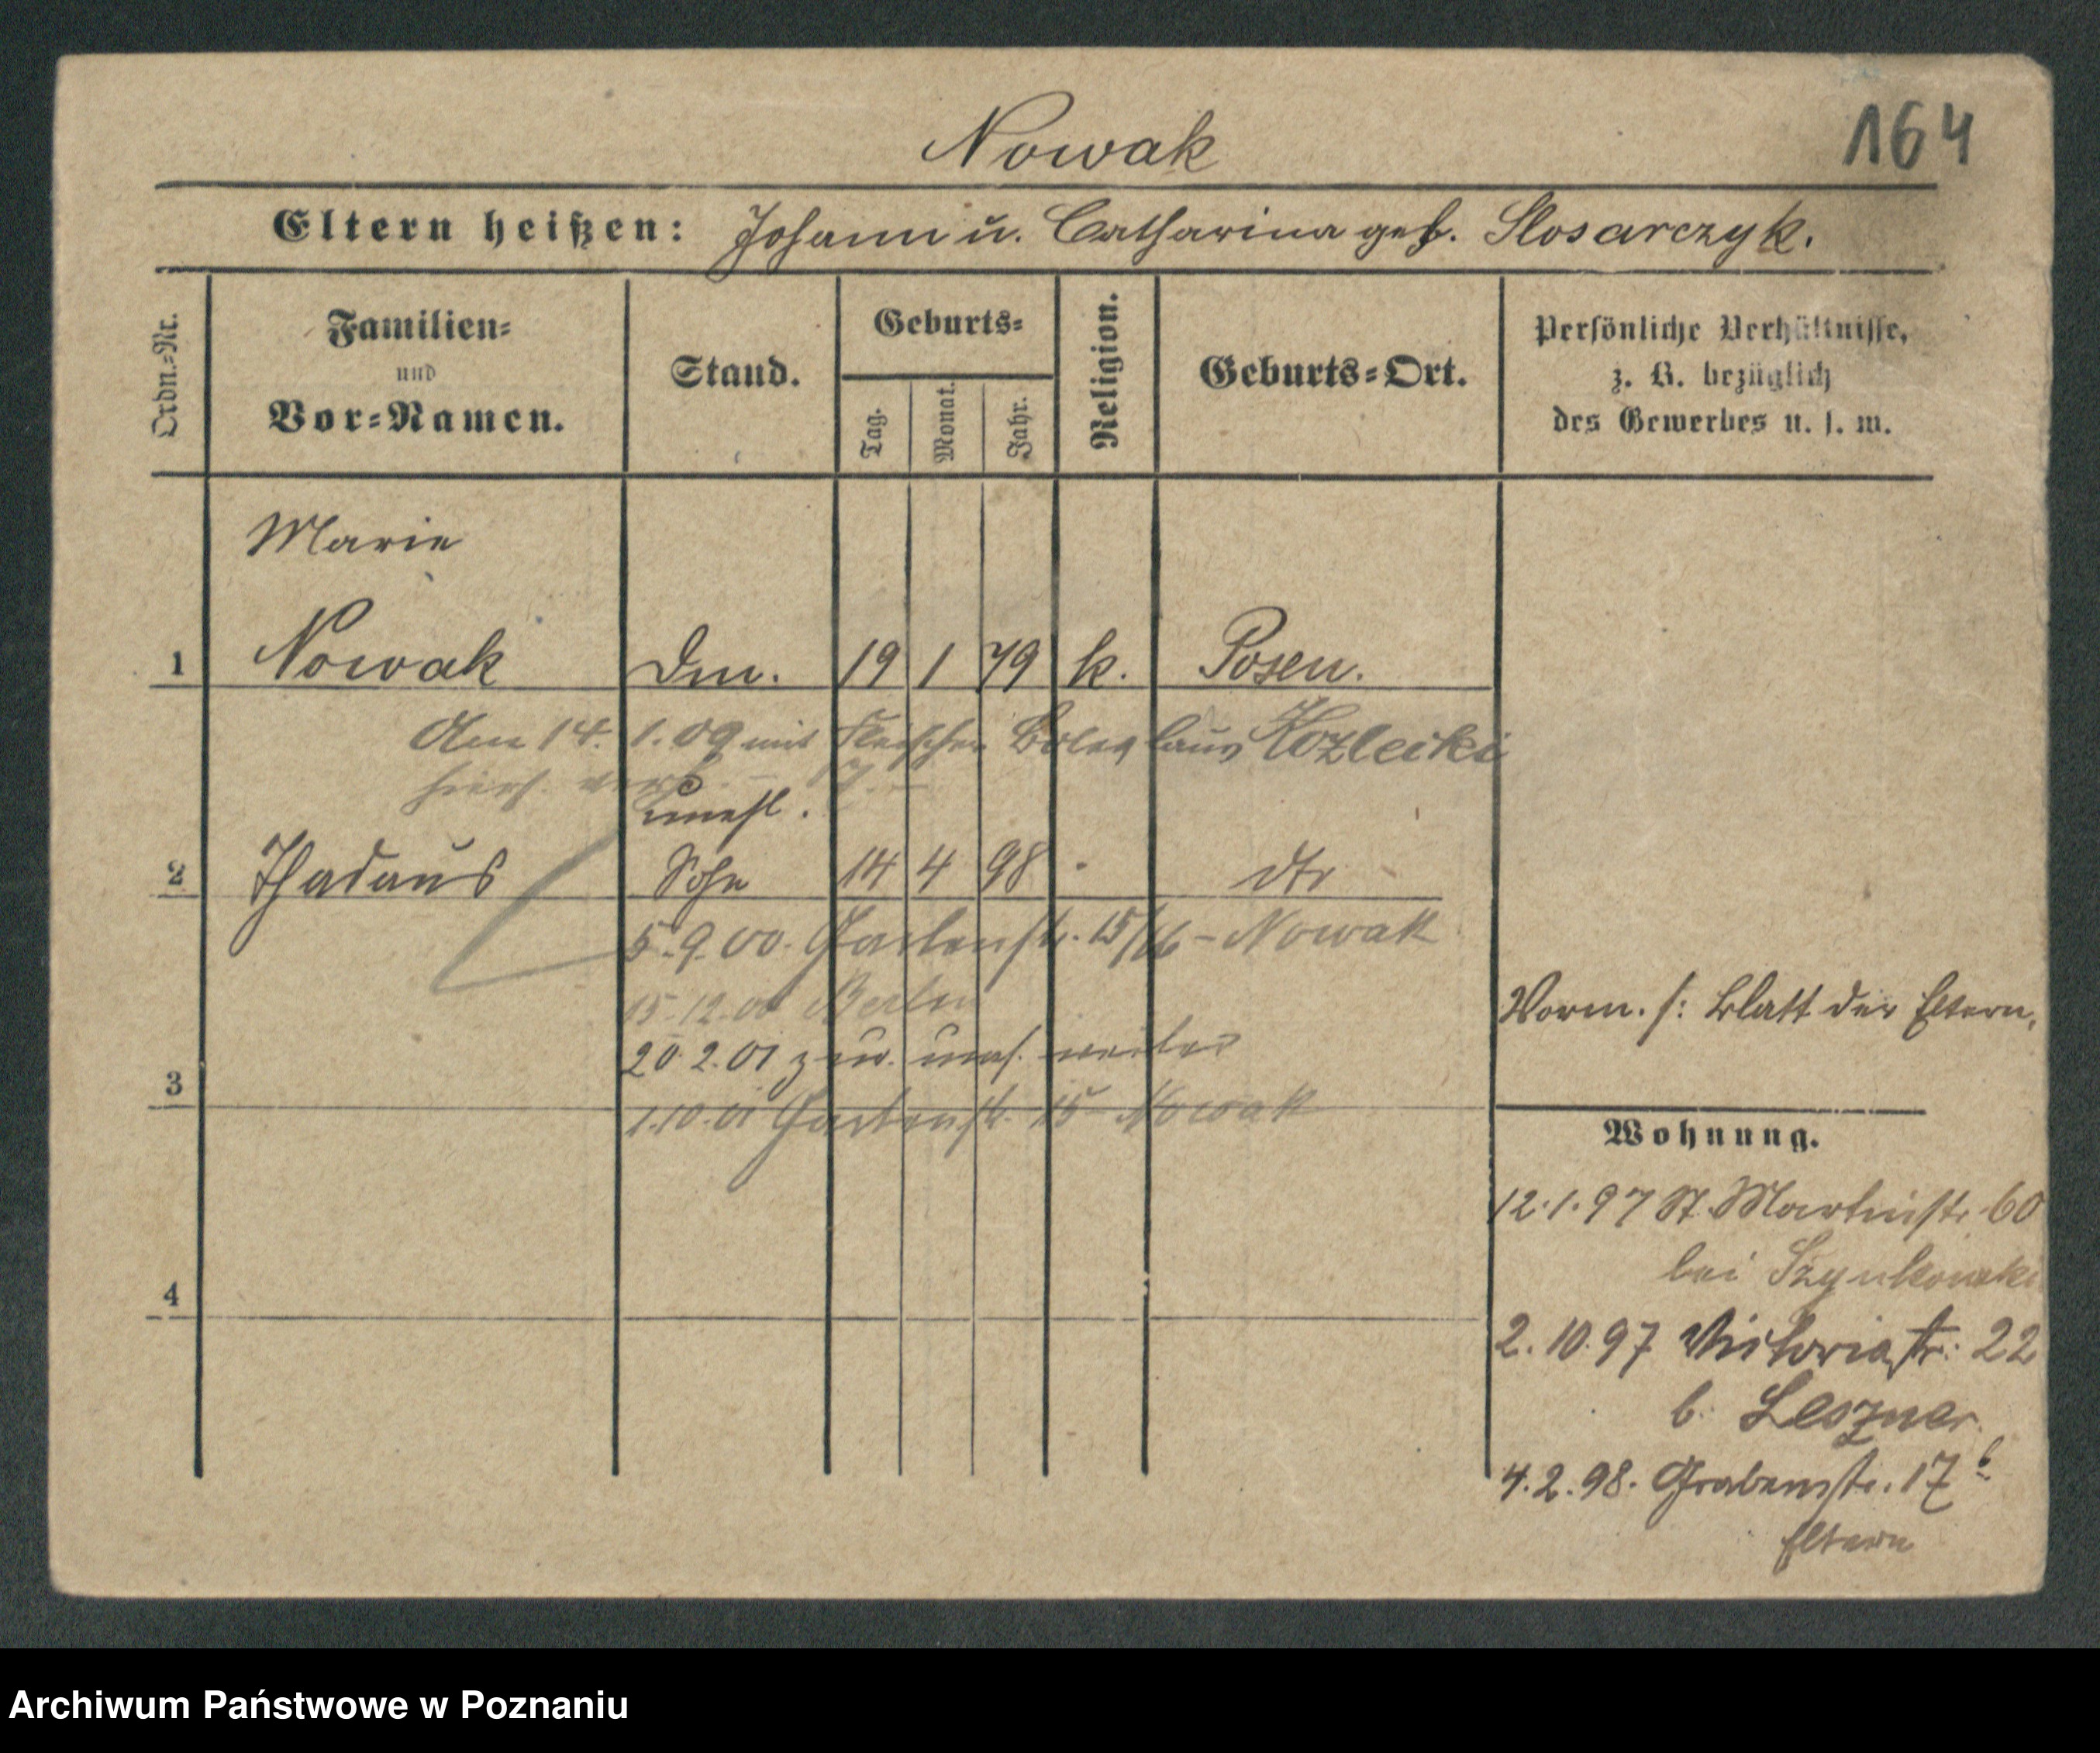 Nowak
164
Eltern heißen: Johann u. Catharina geb. Slosarczyk.
Ordn.=Nr.
Familien=
und
Vor=Namen.
Stand.
Geburts=
Tag.
Monat.
Jahr.
Religion.
Geburts=Ort.
Persönliche Verhältnisse,
z. B. bezüglich
des Gewerbes u. s. w.
Marie
1 Nowak Dm. 19 1 79 k. Posen.
Am 14. 1. 09 mit Fleischer Boleslaus Kozlecki
hiers. verh.
unehl.
2 Thadäus Sohn 14 4 98 dto
5. 9. 00. Gartenstr. 15/16 - Nowak
15. 12. 00 Berlin
20. 2. 01 zur. weiter
3
1. 10. 01 Gartenstr. 15 Nowak
4
Vorm. s: Blatt der Eltern.
Wohnung.
12. 1. 97 St. Martinstr. 60
bei Szynkowski
2. 10. 97 Victoriastr: 22
b. Leszner.
4. 2. 98. Grabenstr. 17 b
Eltern
Archiwum Państwowe w Poznaniu